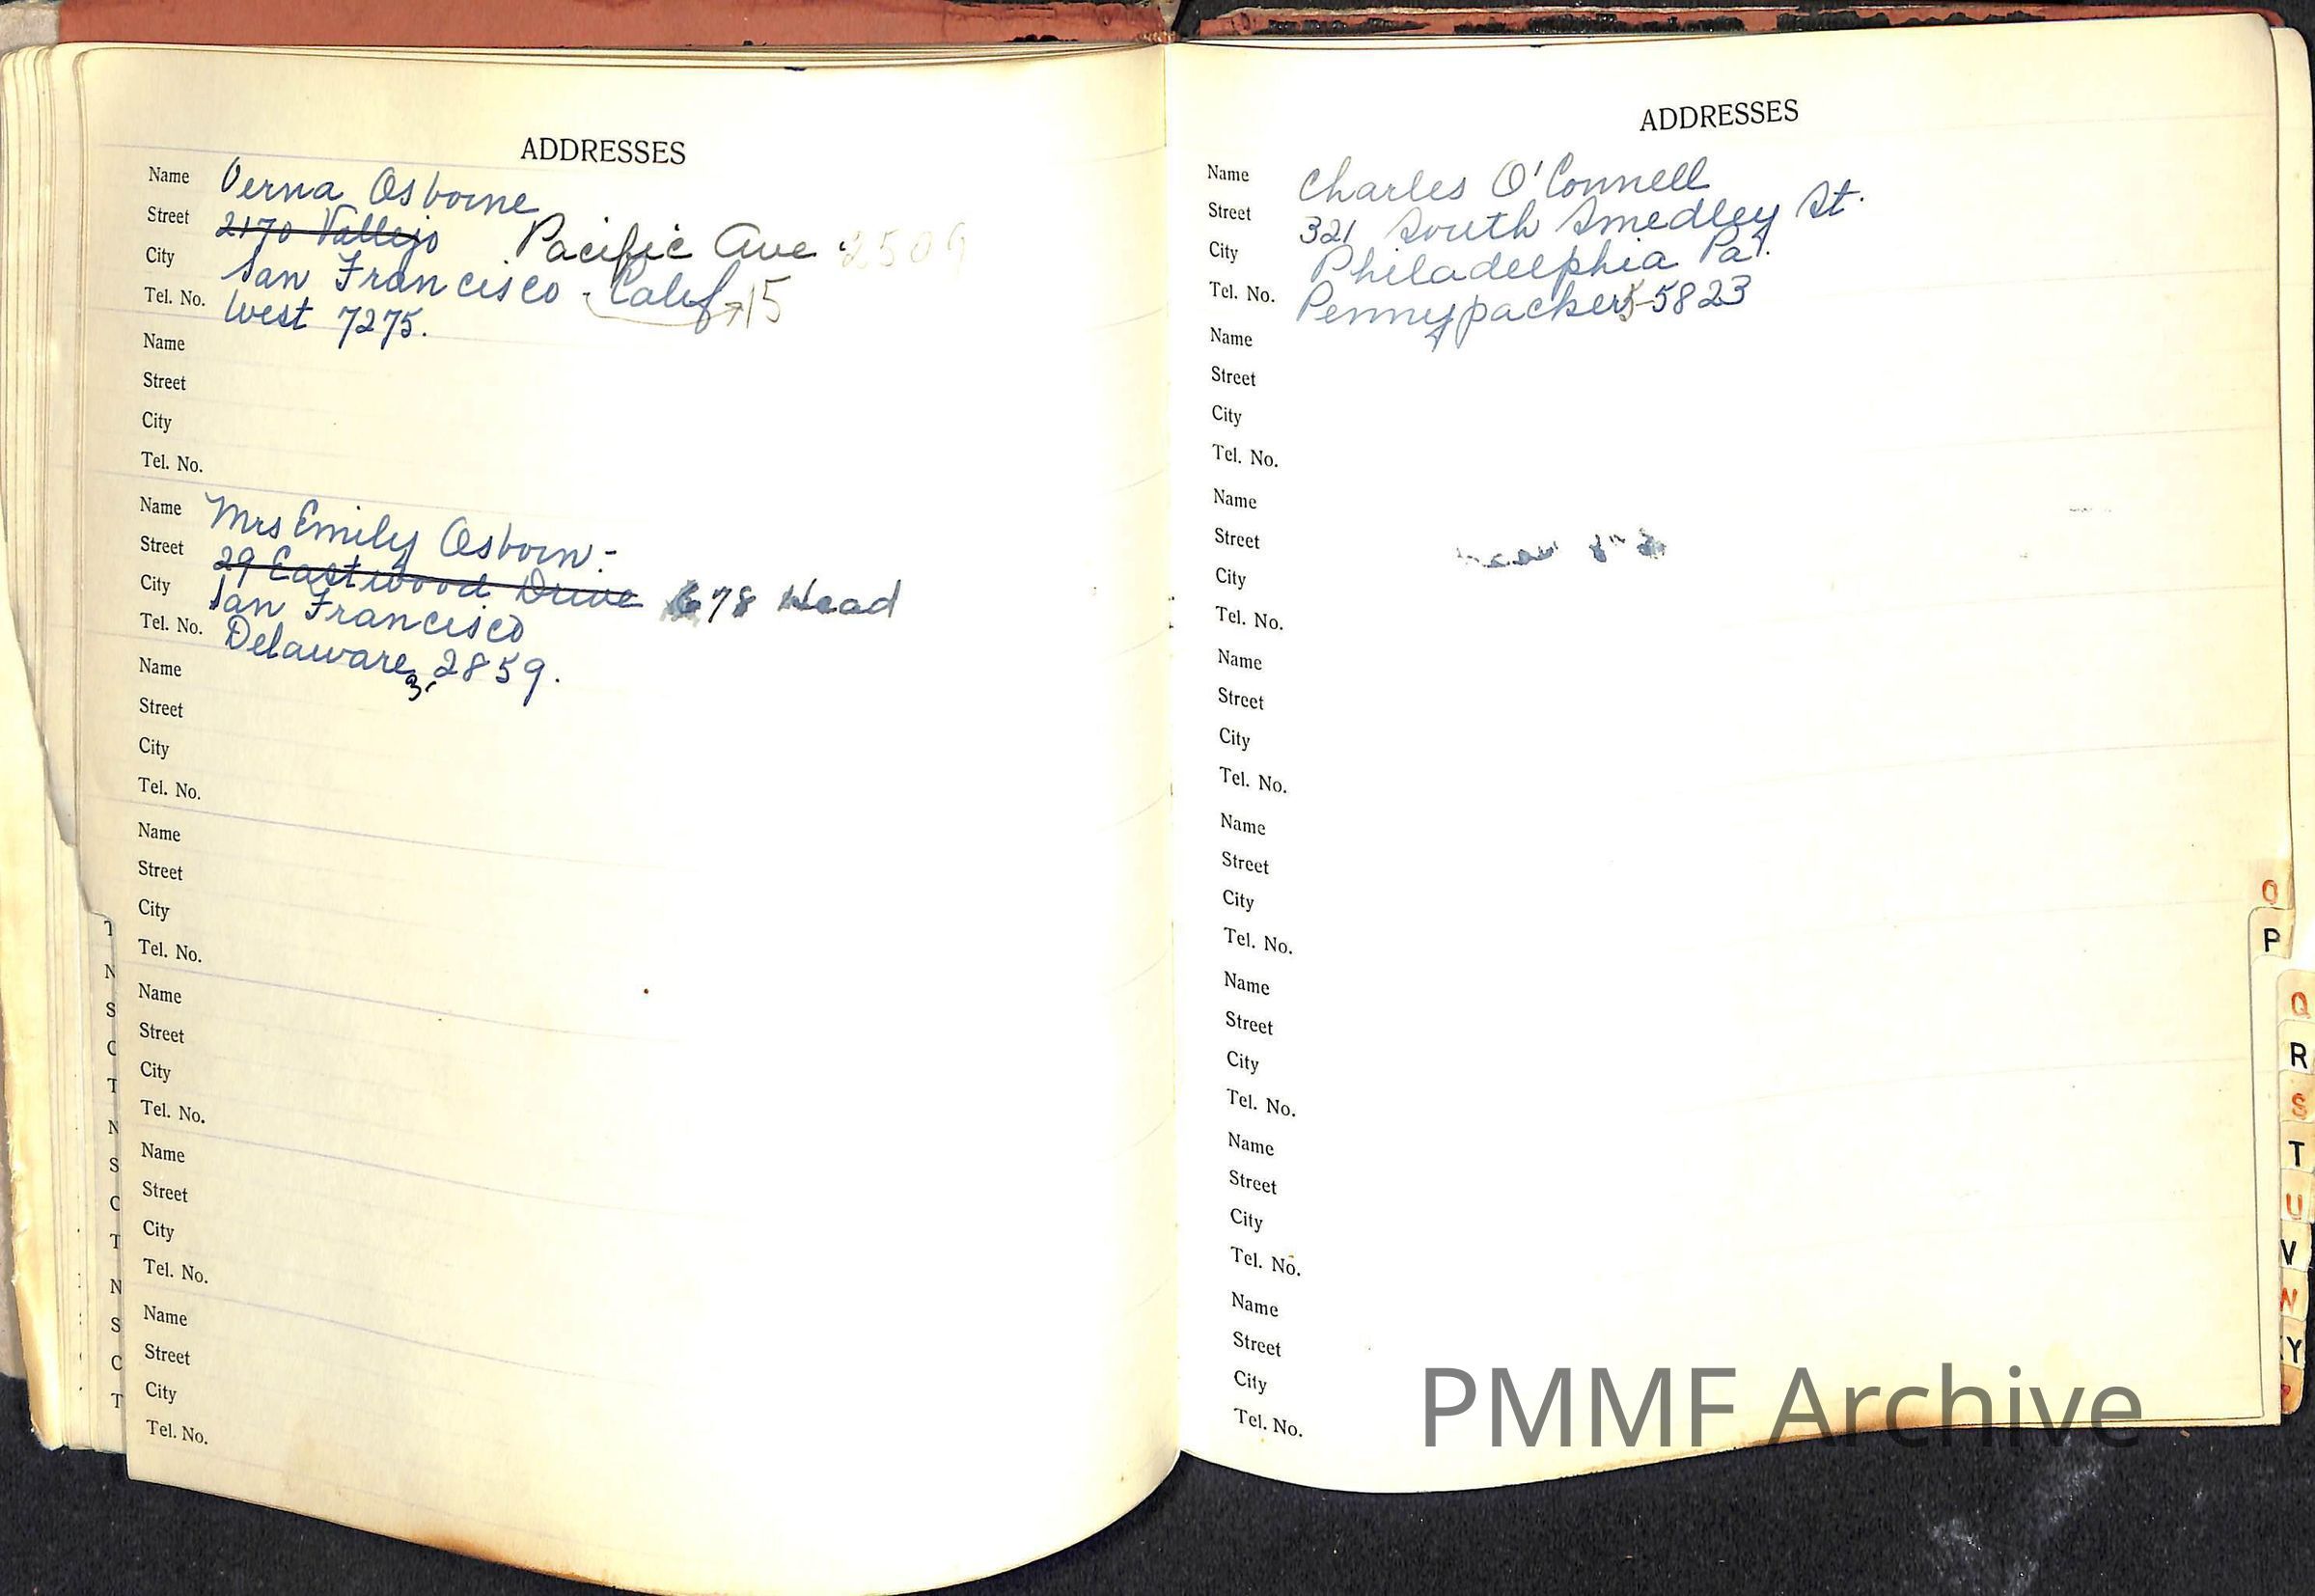 ADDRESSES
Name Verna Osborne
Street 2170 Vallejo Pacific Ave 2509
City San Francisco - Calif 15
Tel. No. West 7275.
Name
Street
City
Tel. No.
Name Mrs Emily Osborn -
Street 29 Eastwood Drive 678 Head
City San Francisco
Tel. No. Delaware 3, 2859.
Name
Street
City
Tel. No.
Name
Street
City
Tel. No.
Name
Street
City
Tel. No.
Name
Street
City
Tel. No.
Name
Street
City
Tel. No.
ADDRESSES
Name Charles O'Connell
Street 321 South Smedley St.
City Philadelphia Pa.
Tel. No. Pennypacker 5-5823
Name
Street
City
Tel. No.
Name
Street
City
Tel. No.
Name
Street
City
Tel. No.
Name
Street
City
Tel. No.
Name
Street
City
Tel. No.
Name
Street
City
Tel. No.
Name
Street
City
Tel. No.
O
P
Q
R
S
T
U
V
W
Y
PMMF Archive